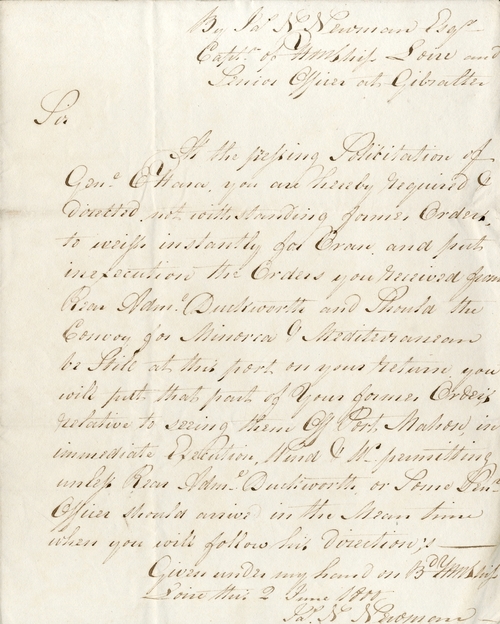 By Jas. N. Newman Esqr
Captn. of HMShip Loire and
Senior Officer at Gibralter
Sir
At the pressing Solicitation of
Genl. O'Hara, you are hereby required &
Directed, not with standing former Orders,
to weigh instantly for Oran, and put
in execution the Orders you received from
Rear Adml. Duckworth and Should the
Convoy for Minorca & Mediterranean
be Still at this port on your return, you
will put that part of Your former Orders
relative to seeing them Off Port Mahon, in
immediate Execution, Wind & Wr. permitting,
unless Rear Adml. Duckworth, or Some Senr.
Officer should arrive in the Mean time
when you will follow his direction;s
Given under my hand on Bd. HMShip
Loire this 2 June 1800
Jas. N. Newman